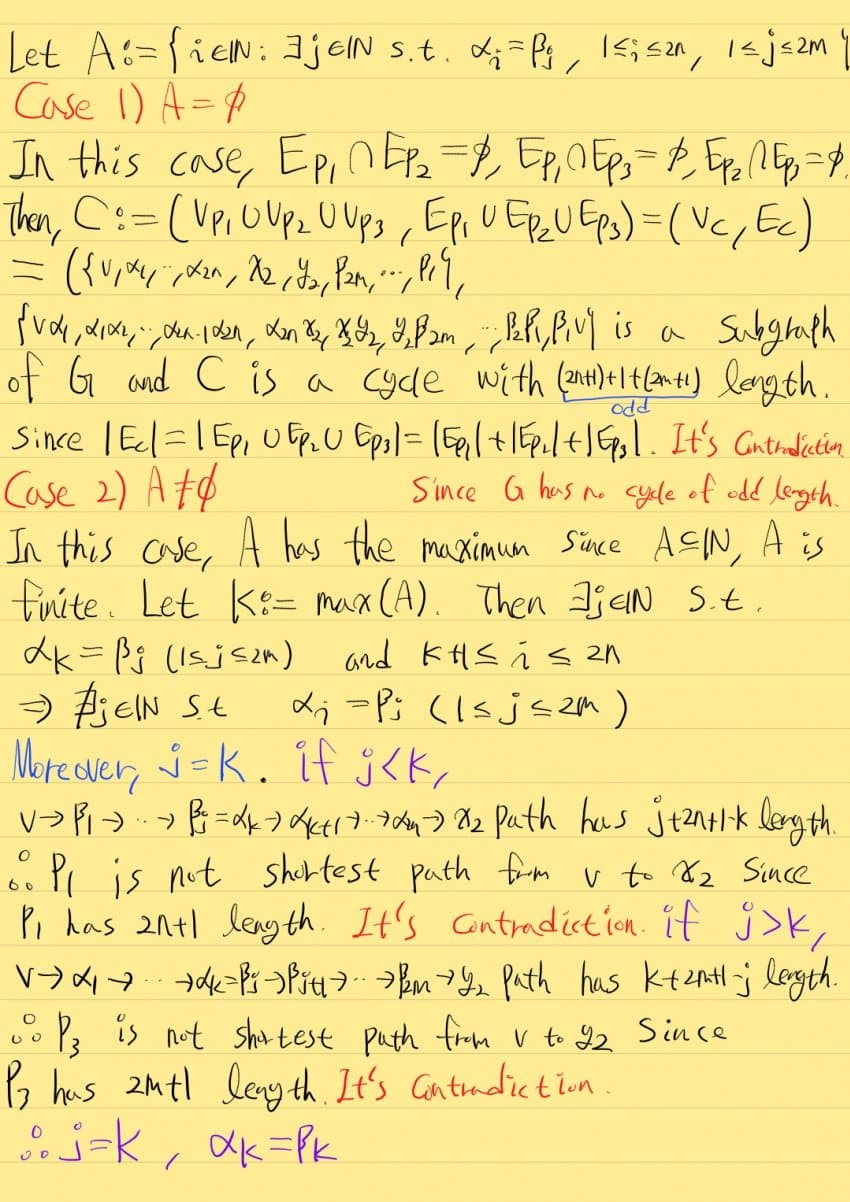 Let A:={i∈ℕ: ∃j∈ℕ s.t. αᵢ=βⱼ, 1≤i≤2n, 1≤j≤2m}
Case 1) A=∅
In this case, E_{P₁}∩E_{P₂}=∅, E_{P₁}∩E_{P₃}=∅, E_{P₂}∩E_{P₃}=∅.
Then, C:=(V_{P₁}∪V_{P₂}∪V_{P₃}, E_{P₁}∪E_{P₂}∪E_{P₃})=(V_C, E_C)
=({v,α₁,..,α₂ₙ, x₂,y₂,β₂ₘ,...,β₁},
{vα₁,α₁α₂,..,α₂ₙ₋₁α₂ₙ, α₂ₙx₂, x₂y₂, y₂β₂ₘ,..,β₂β₁,β₁v} is a subgraph
of G and C is a cycle with (2n+1)+1+(2m+1) length.
odd
Since |E_C|=|E_{P₁}∪E_{P₂}∪E_{P₃}|=|E_{P₁}|+|E_{P₂}|+|E_{P₃}|. It's Contradiction
Case 2) A≠∅ Since G has no cycle of odd length.
In this case, A has the maximum since A⊆ℕ, A is
finite. Let K:=max(A). Then ∃j∈ℕ s.t.
α_K=βⱼ (1≤j≤2m) and K+1≤i≤2n
⇒ ∄j∈ℕ s.t αᵢ=βⱼ (1≤j≤2m)
Moreover, j=K. if j<K,
v→β₁→..→βⱼ=α_K→α_{K+1}→..→α₂ₙ→x₂ path has j+2n+1-K length.
∴ P₁ is not shortest path from v to x₂ since
P₁ has 2n+1 length. It's Contradiction. if j>K,
v→α₁→...→α_K=βⱼ→βⱼ₊₁→..→β₂ₘ→y₂ path has K+2m+1-j length.
∴ P₃ is not shortest path from v to y₂ Since
P₃ has 2m+1 length. It's Contradiction.
∴ j=K, α_K=β_K